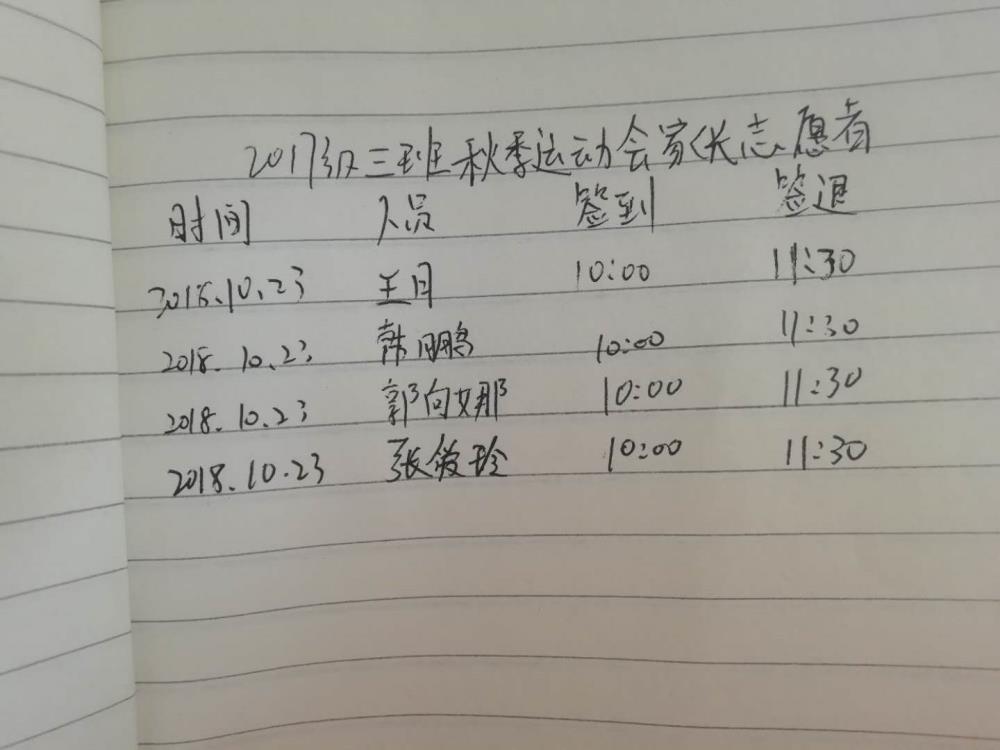 2017级三班秋季运动会家长志愿者
时间 人员 签到 签退
2018.10.23 王月 10:00 11:30
2018.10.23 韩鹏 10:00 11:30
2018.10.23 郭向娜 10:00 11:30
2018.10.23 张筱玲 10:00 11:30